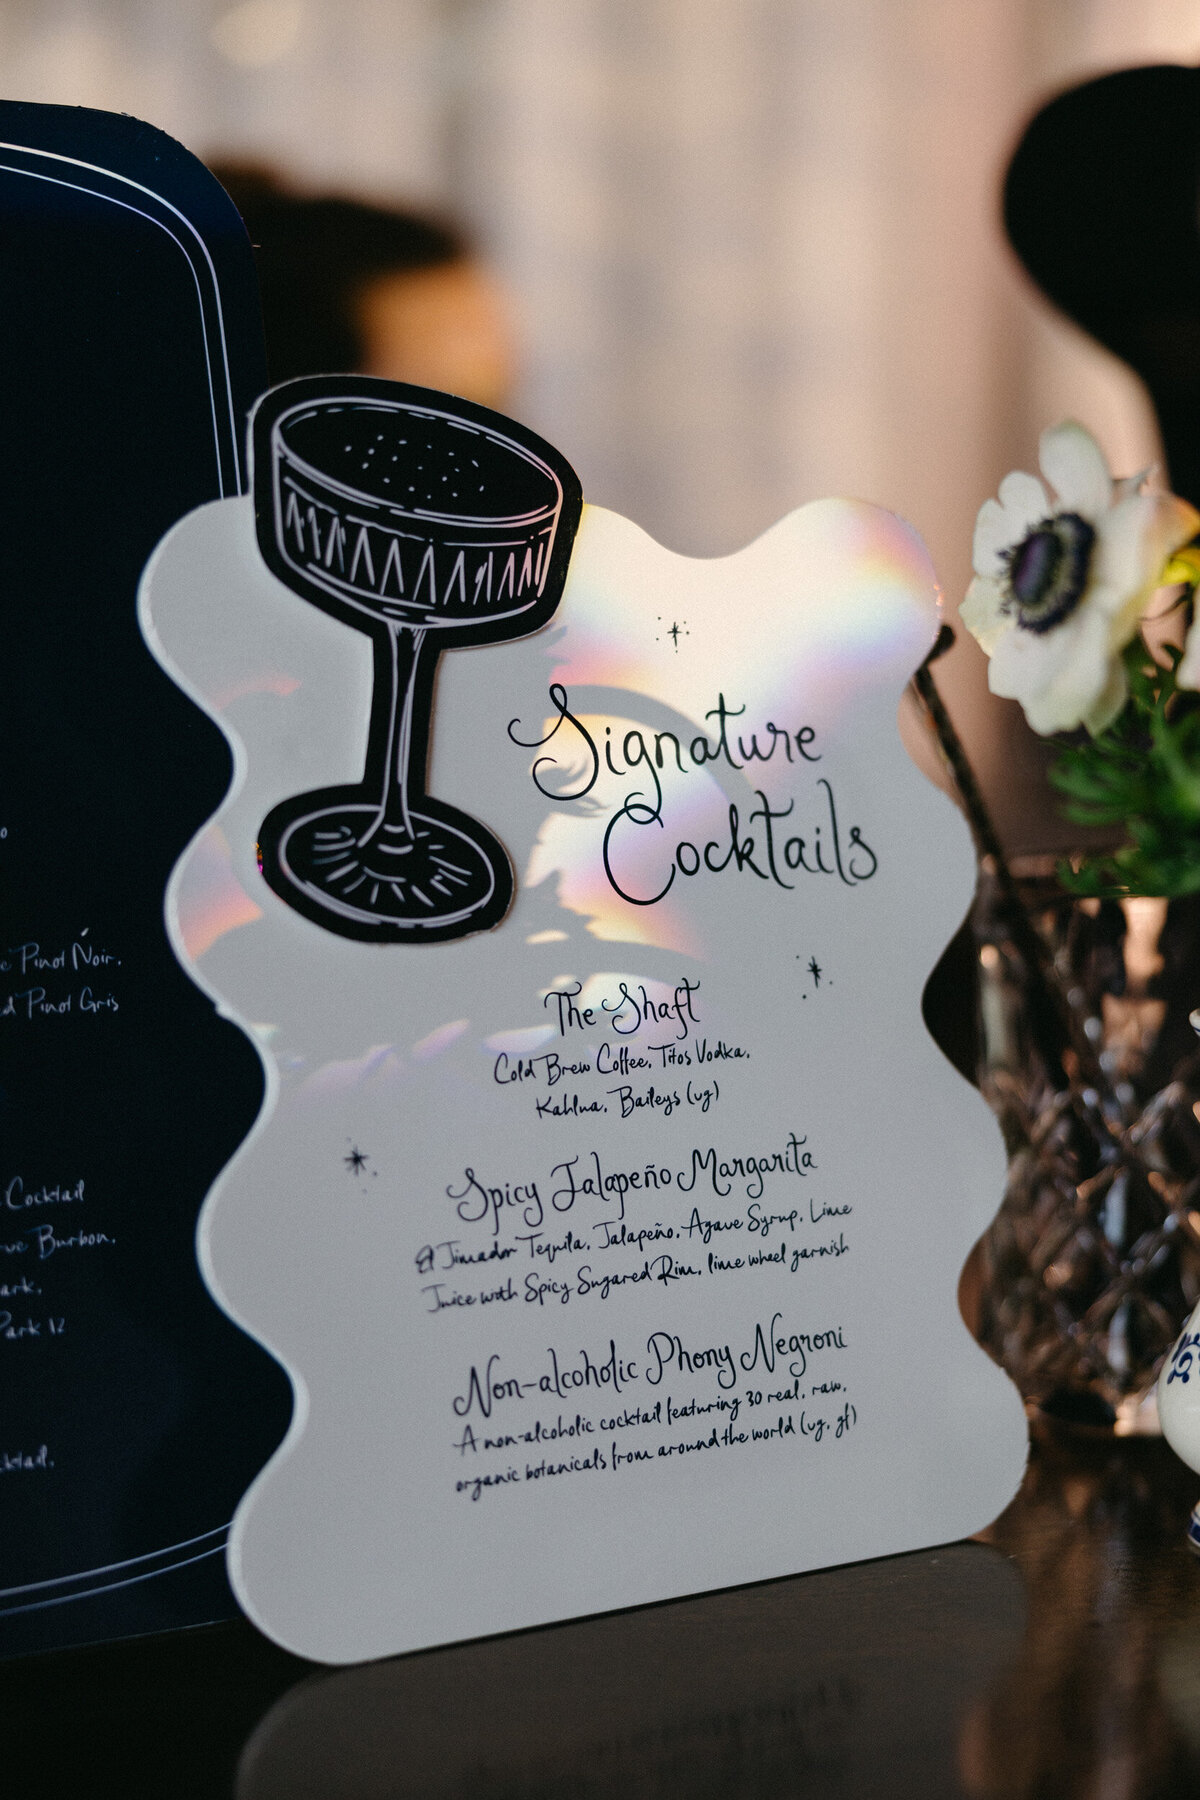 Pinot Noir.
Pinot Gris
Cocktail
Burbon.
Park 12
Signature
Cocktails
The Shaft
Cold Brew Coffee, Titos Vodka,
Kahlua, Baileys (vg)
Spicy Jalapeño Margarita
El Jimador Tequila, Jalapeño, Agave Syrup, Lime
Juice with Spicy Sugared Rim, lime wheel garnish
Non-alcoholic Phony Negroni
A non-alcoholic cocktail featuring 30 real, raw,
organic botanicals from around the world (vg, gf)